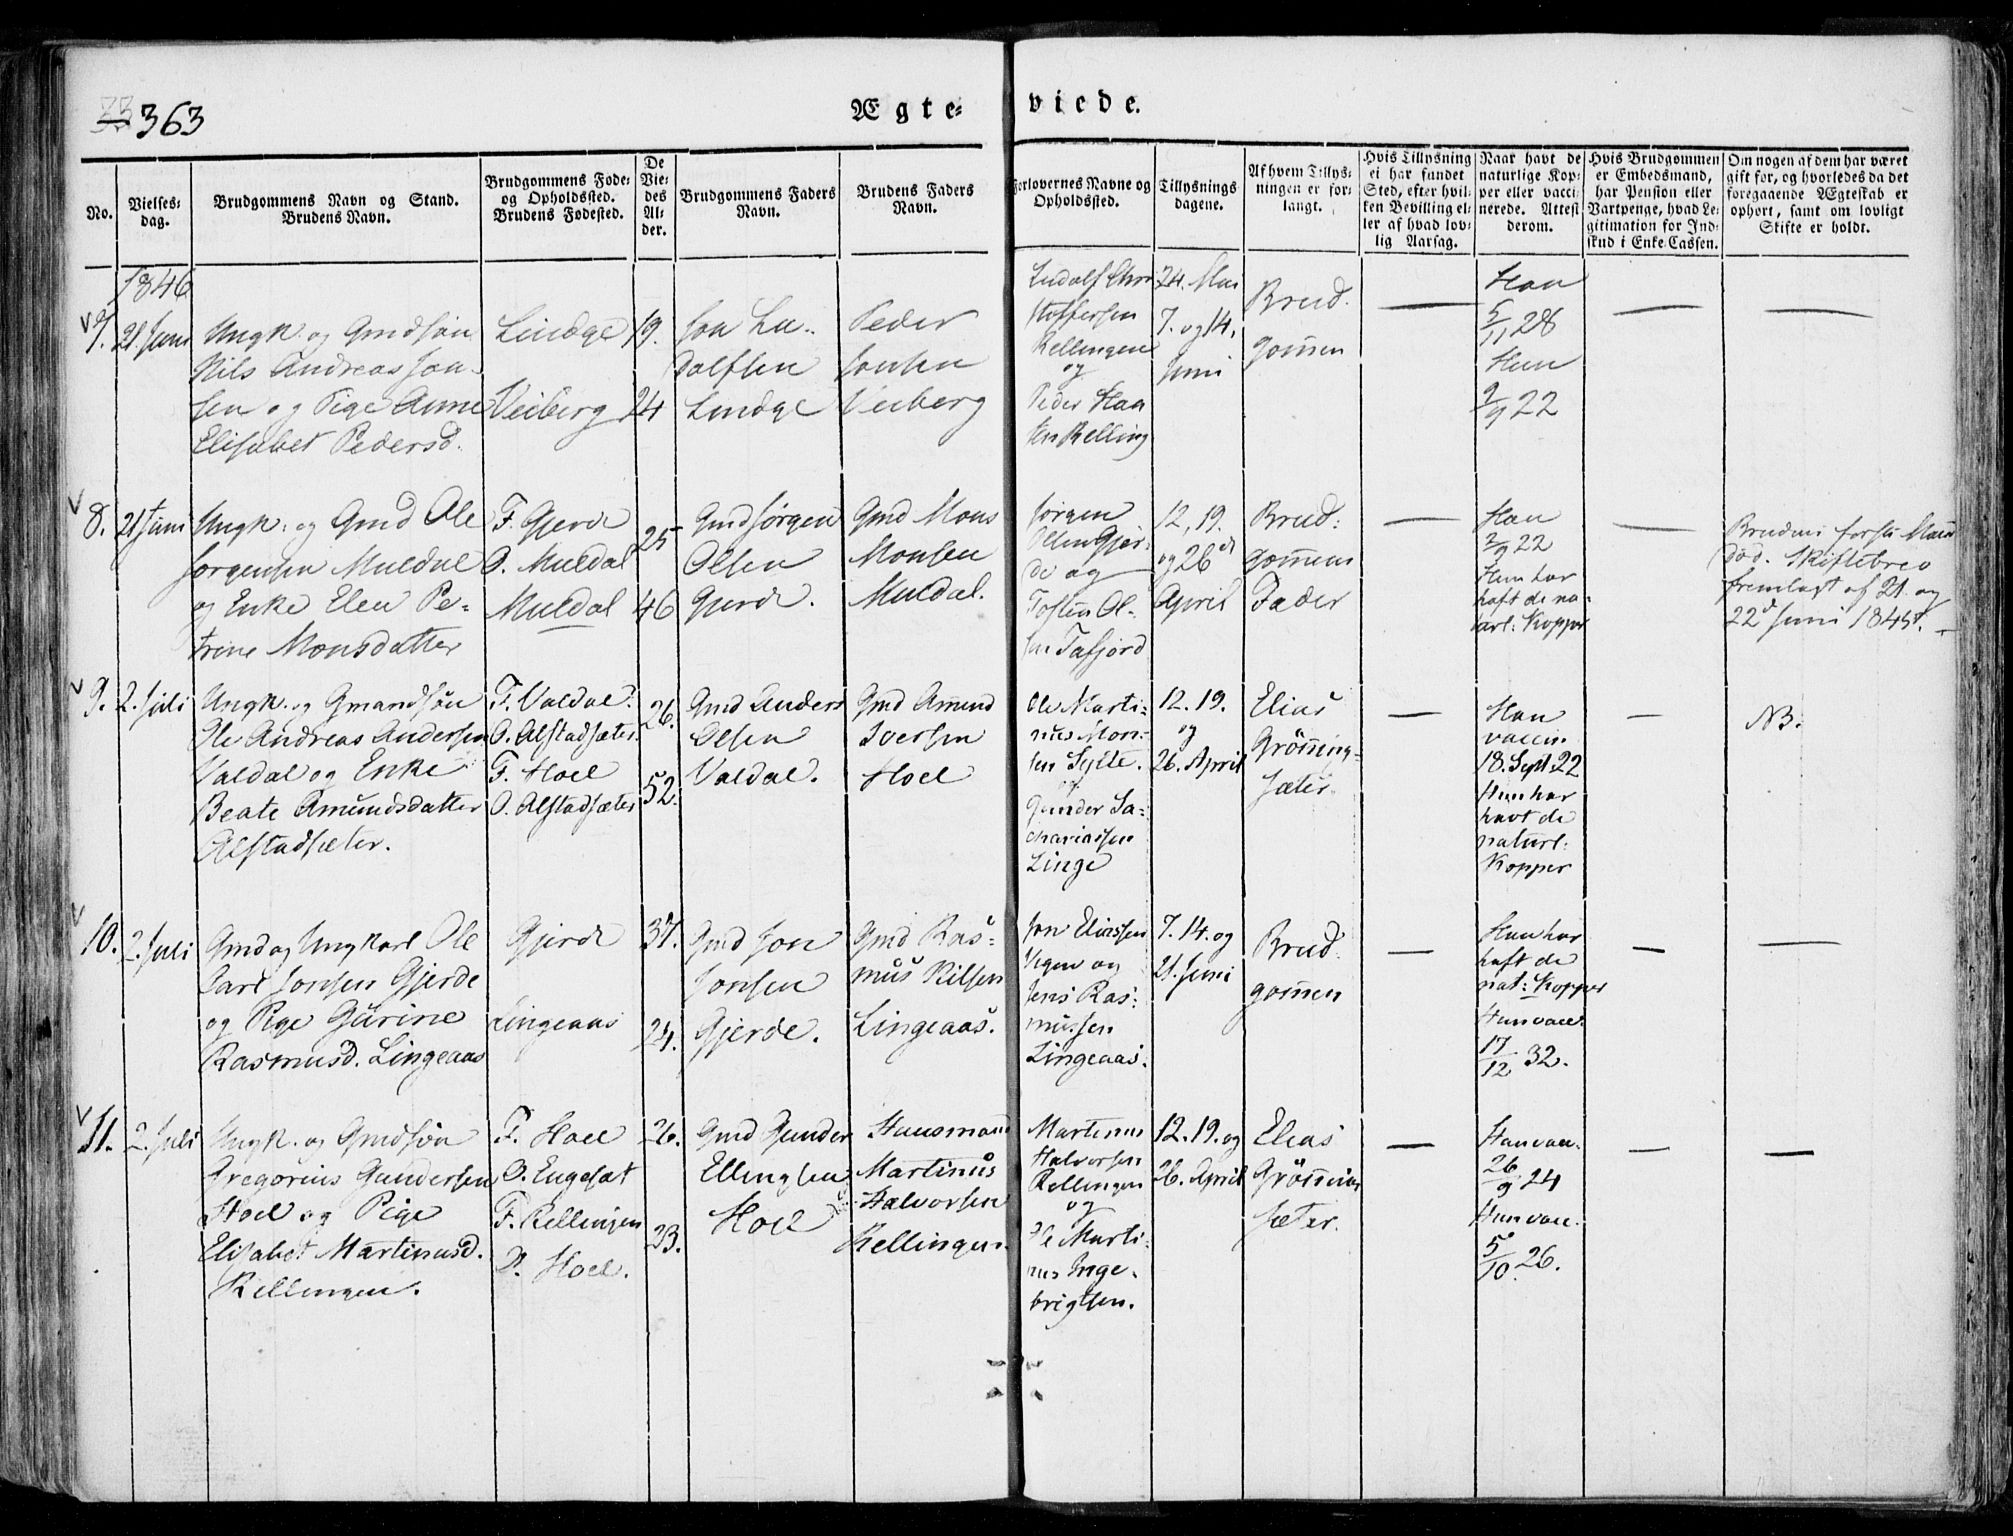 363
Ægteviede.
No.
Vielses-
dag.
Brudgommens Navn og Stand.
Brudens Navn.
Brudgommens Føde-
og Opholdssted.
Brudens Fødested.
De
Vie-
des
Al-
der.
Brudgommens Faders
Navn.
Brudens Faders
Navn.
Forlovernes Navne og
Opholdssted.
Tillysnings
dagene.
Af hvem Tillys-
ningen er for-
langt.
Hvis Tillysning
ei har fundet
Sted, efter hvil-
ken Bevilling el-
ler af hvad lov-
lig Aarsag.
Naar havt de
naturlige Kop-
per eller vacci-
nerede. Attest
derom.
Hvis Brudgommen
er Embedsmand,
har Pension eller
Vartpenge, hvad Le-
gitimation for Ind-
skud i Enke-Cassen.
Om nogen af dem har været
gift før, og hvorledes da det
foregaaende Ægteskab er
ophørt, samt om lovligt
Skifte er holdt.
1846
7.
21 Juni
Ungk. og Gmdsøn
Nils Andreas Jon-
sen og Pige Anne
Elisabet Pedersd.
Lindge
Veiberg
19.
24
Jon Lu-
dolfsen
Lindge
Peder
Jonsen
Veiberg
Ludolf Chri
stoffersen
Rellingen
og
Peder Haa
sen Relling
24. Mai
7. og 14.
Juni
Brud-
gommen
—
Han
5/11 28
Hun
2/9 22
—
—
8.
21 Juni
Ungk: og Gmd Ole
Jørgensen Muldal
og Enke Elen Pe-
trine Monsdatter
F. Gjerde
O. Muldal
Muldal
25
46
Gmd Jørgen
Olsen
Gjerde.
Gmd Mons
Monsen
Muldal.
Jørgen
Olsen Gjer-
de og
Tosten Ol-
sen Tafjord
12, 19.
og 26de
April
Brud-
gommens
Fader
—
Han
2/9 22
Hun har
haft de na-
turl: Kopper
—
Brudens første Mand
död. Skiftebrev
fremlagt af 21. og
22d Juni 1845.
9.
2. Juli
Ungk. og Gmandsøn
Ole Andreas Andersen
Valdal og Enke
Beate Amundsdatter
Alstadsæter.
F. Valdal.
O. Alstadsæter.
F. Hoel
O. Alstadsæter
26.
52.
Gmd Anders
Olsen
Valdal.
Gmd Amund
Iversen
Hoel
Ole Marti-
nus Mon-
sen Sylte.
og
Gunder Sa-
chariassen
Linge
12. 19.
og
26. April
Elias
Grönning-
sæter.
—
Han
vaccin.
18. Sept. 22
Hun har
havt de
naturl:
Kopper
—
NB.
10.
2. Juli
Gmd og Ungkarl Ole
Carl Jonsen Gjerde
og Pige Gurine
Rasmusd. Lingeaas
Gjerde
Lingeaas
37.
24.
Gmd Jon
Jonsen
Gjerde.
Gmd Ras-
mus Nilsen
Lingeaas.
Jon Eliassen
og
Jens Ras-
mussen
Lingeaas.
7. 14. og
21. Juni
Brud-
gommen
—
Han har
haft de
nat: Kopper
Hun vacc.
17/12 32.
—
—
11.
2. Juli
Ungk. og Gmdsøn
Gregorius Gundersen
Hoel og Pige
Elisabet Martinusd.
Rellingen.
F. Hoel
O. Engeset
F. Rellingen
O. Hoel.
26.
23.
Gmd Gunder
Ellingsen
Hoel
Huusmand
Martinus
Halvorsen
Rellingen.
Martinus
Halvorsen
Rellingen
og
Ole Marti-
nus Inge-
brigtsen.
12. 19. og
26. April
Elias
Grönning
sæter.
—
Han vacc.
26/9 24
Hun vacc.
5/10 26.
—
—